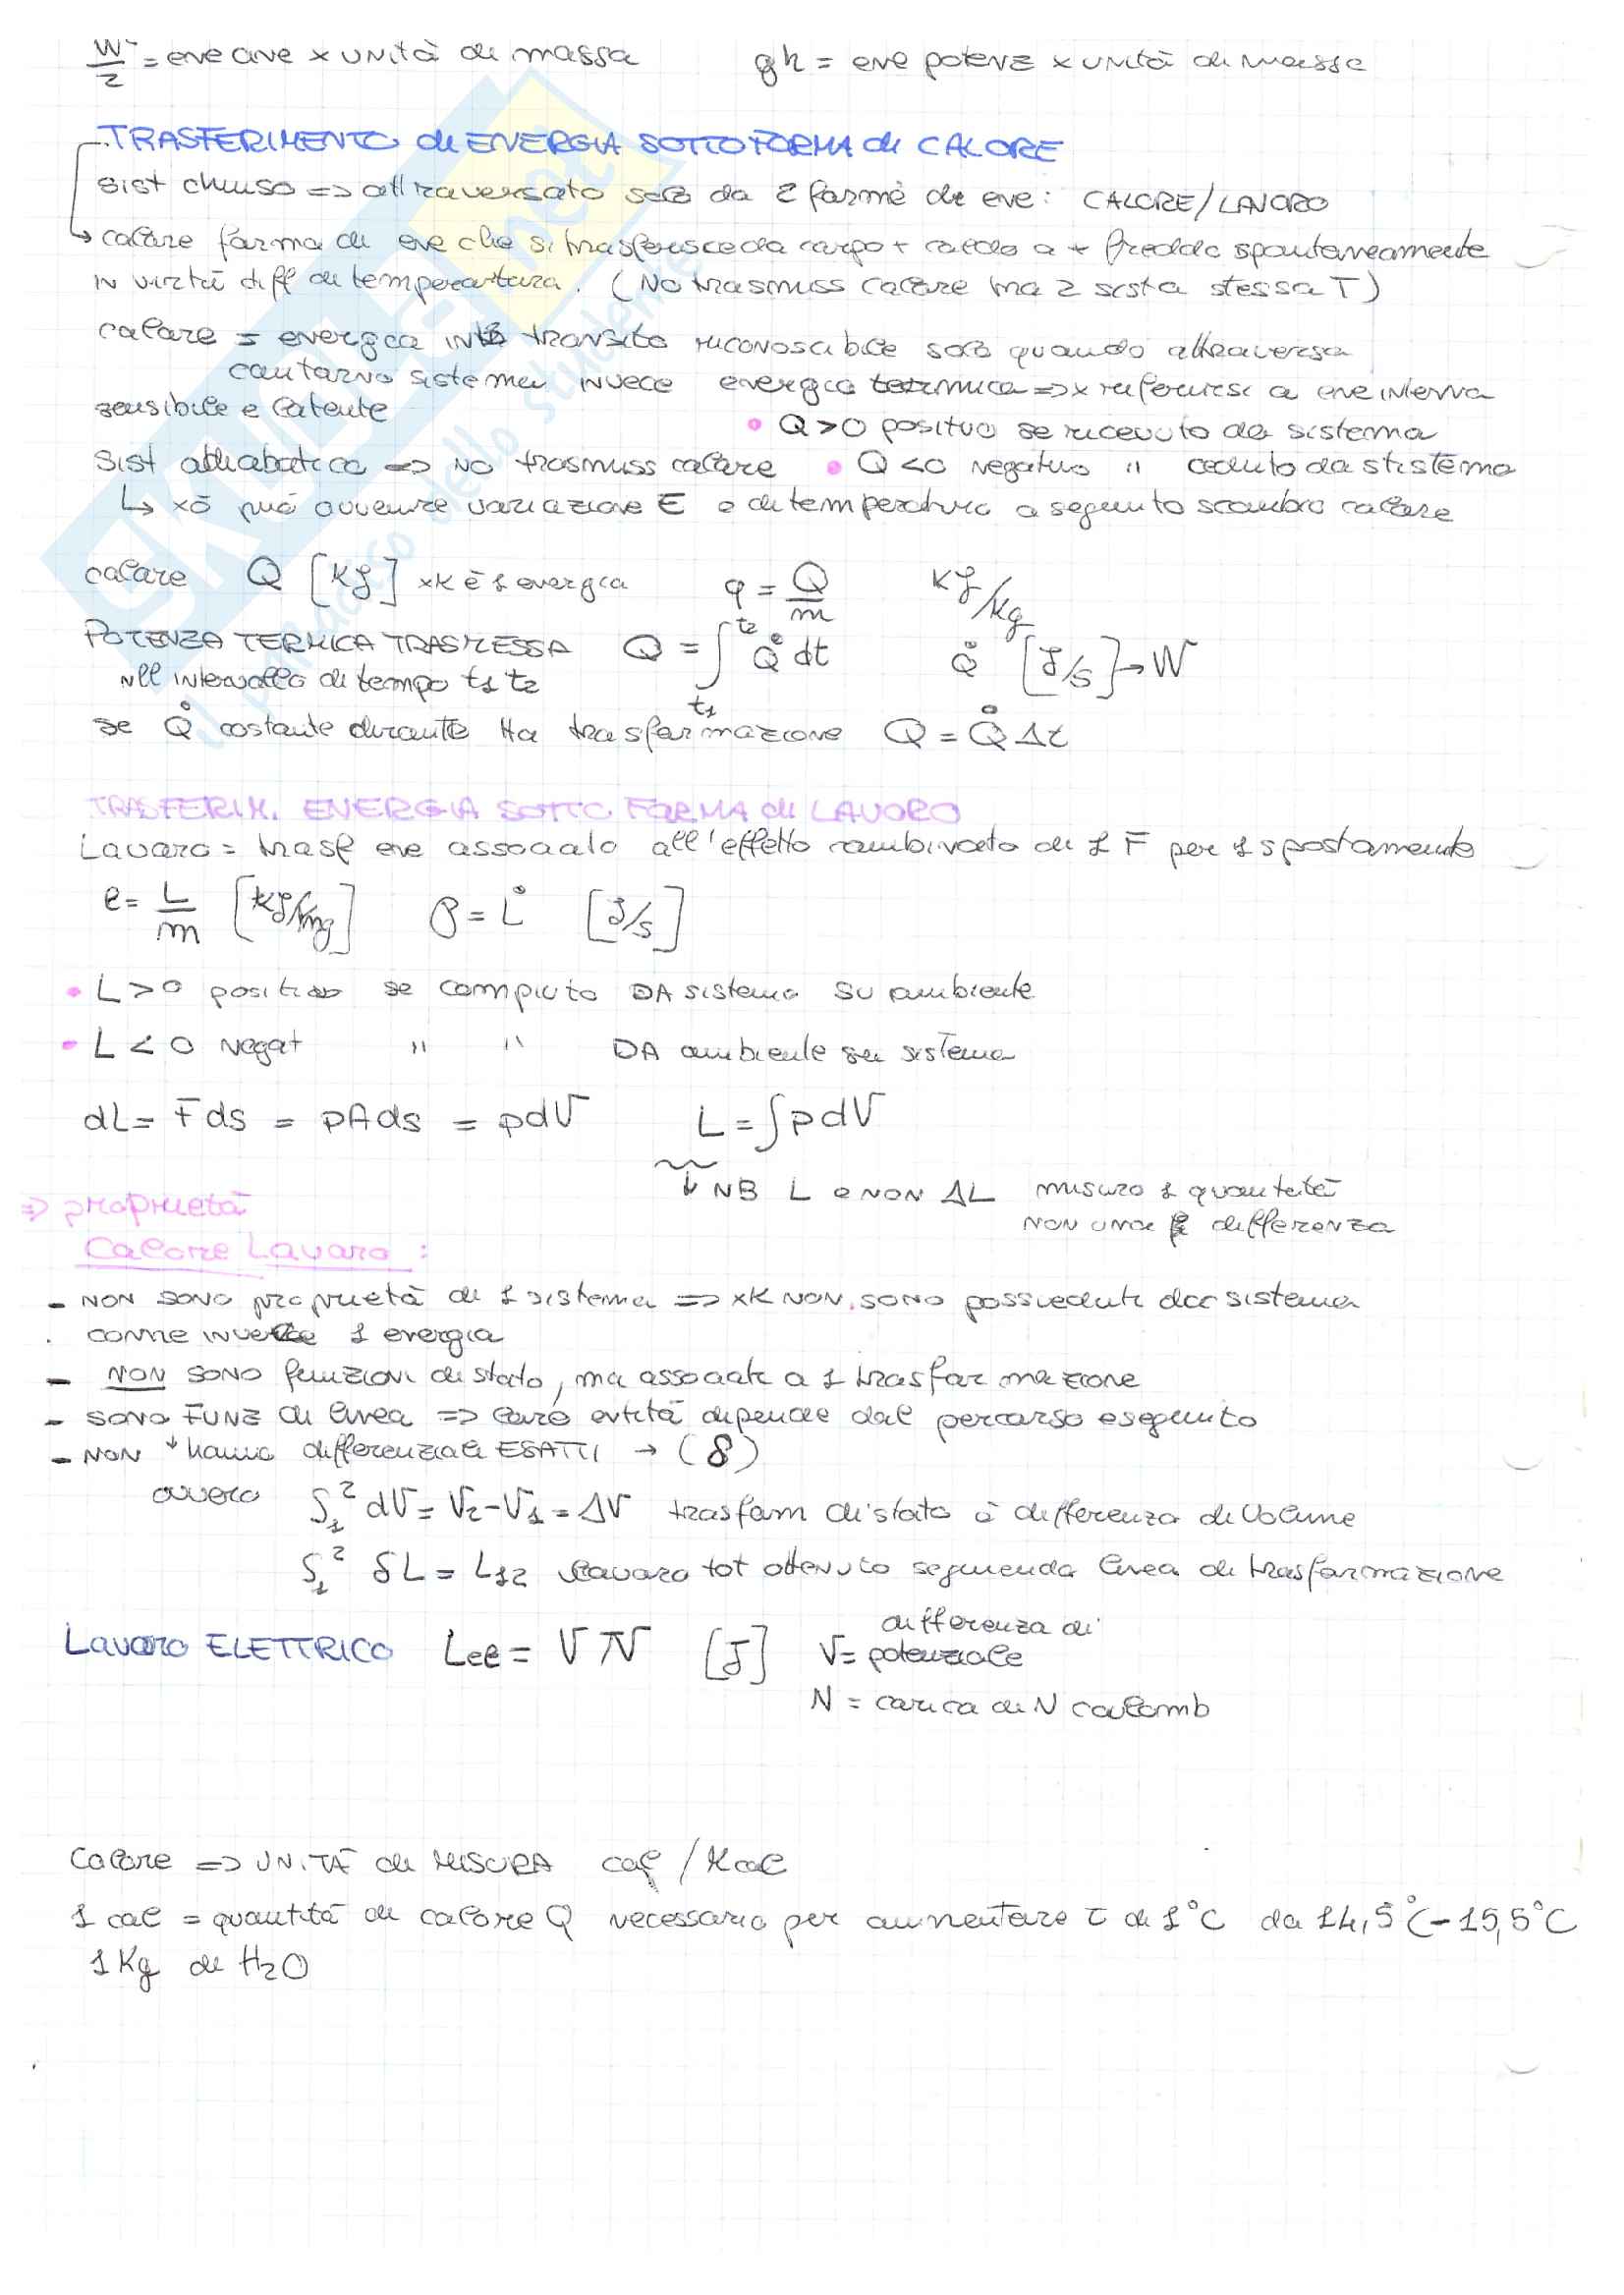 w²/2 = ene cine x unità di massa gh = ene potenz x unità di massa
TRASFERIMENTO di ENERGIA SOTTO FORMA di CALORE
sist chiuso => attraversato solo da 2 forme di ene: CALORE/LAVORO
↳ calore forma di ene che si trasferisce da corpo + caldo a + freddo spontaneamente
in virtù diff di temperartura. (No trasmiss calore tra 2 sist a stessa T)
calore = energia in transito riconoscibile solo quando attraversa
contorno sistema invece energia termica => x riferirsi a ene interna
sensibile e latente
• Q>0 positivo se ricevuto da sistema
Sist adiabatico => NO trasmiss calore • Q<0 negativo " ceduto da sistema
↳ xò può avvenire variazione E e di temperatura a seguito scambio calore
calore Q [KJ] xK è 1 energia q = Q/m KJ/Kg
POTENZA TERMICA TRASMESSA Q = ∫t1 t2 Q̊ dt Q̊ [J/s] → W
nell intervallo di tempo t1 t2
se Q̊ costante durante tta trasformazione Q = Q̊ Δt
TRASFERIM. ENERGIA SOTTO FORMA di LAVORO
Lavoro = trasf ene associato all'effetto combinato di 1 F per 1 spostamento
l = L/m [KJ/Kg] P = L̊ [J/s]
• L>0 positivo se compiuto DA sistema SU ambiente
• L<0 negat " " DA ambiente su sistema
dL = Fds = pAds = pdV L = ∫pdV
↓ NB L e NON ΔL misuro 1 quantità
NON una differenza
=> proprietà
Calore Lavoro :
- NON SONO proprietà di 1 sistema => xK NON SONO possedute dal sistema
come invece 1 energia
- NON SONO funzioni di stato, ma associate a 1 trasformazione
- SONO FUNZ di linea => loro entità dipende dal percorso eseguito
- NON hanno differenziali ESATTI → (δ)
ovvero ∫1 2 dV = V2-V1 = ΔV trasform di stato è differenza di Volume
∫1 2 δL = L12 lavoro tot ottenuto seguendo linea di trasformazione
Lavoro ELETTRICO Lel = V N [J] V = differenza di potenziale
N = carica di N coulomb
Calore => UNITÀ di MISURA cal / Kcal
1 cal = quantità di calore Q necessario per aumentare T di 1°C da 14,5°C - 15,5°C
1 Kg di H2O